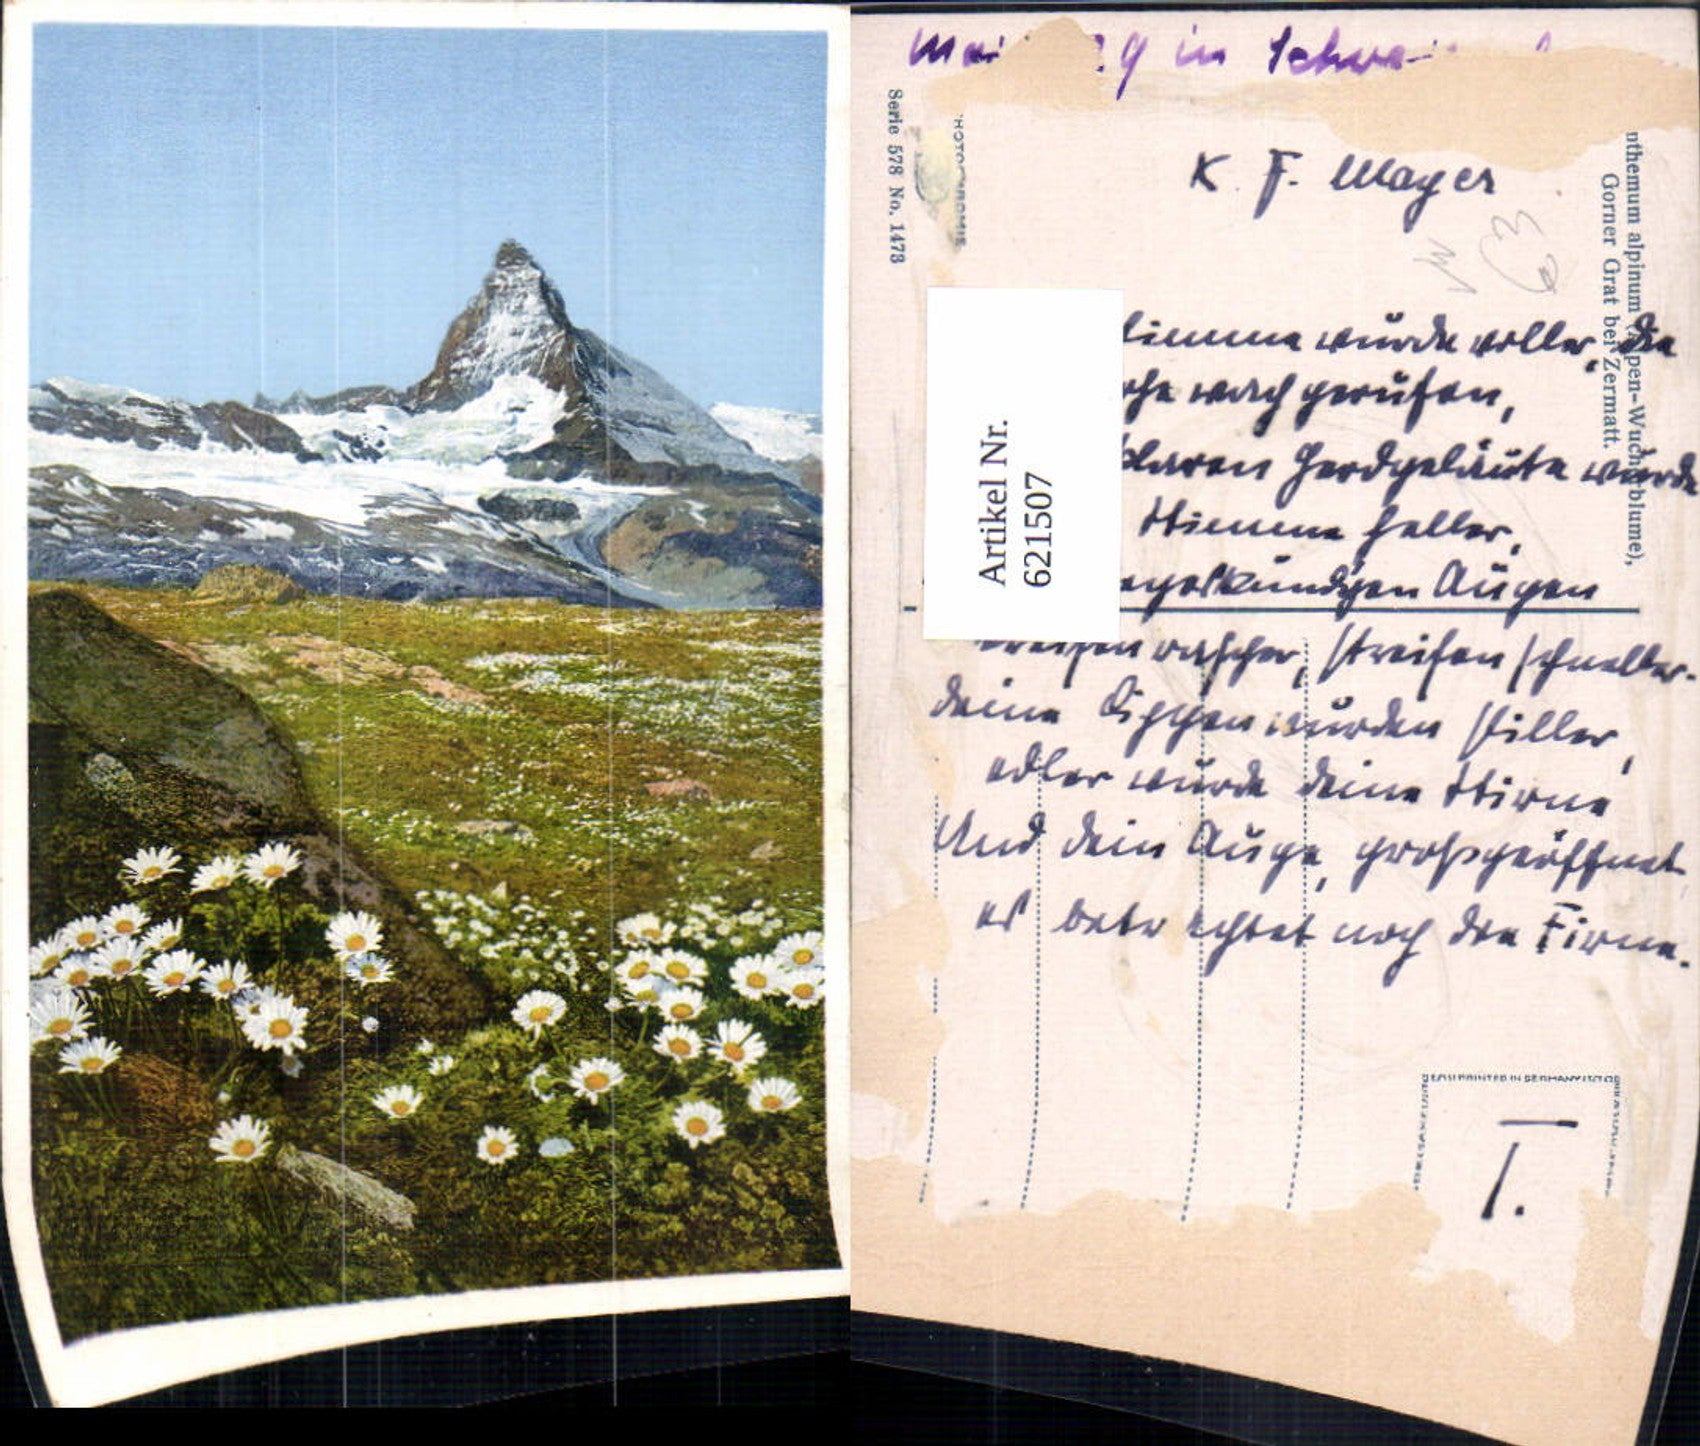 Mai 9 in Schwe
Serie 578 No. 1473
nthemum alpinum (Alpen-Wucherblume),
Gorner Grat bei Zermatt.
K. F. Mayer
Artikel Nr.
621507
timme wurde voller, die
wach gerufen,
klaren Herdgeläute wurde
Stimme heller,
Augen
rascher, streifen schneller.
deine Lippen wurden stiller,
edler wurde deine Stirne
Und dein Auge, großgeöffnet
es betrachtet noch den Firne.
PRINTED IN GERMANY
T.